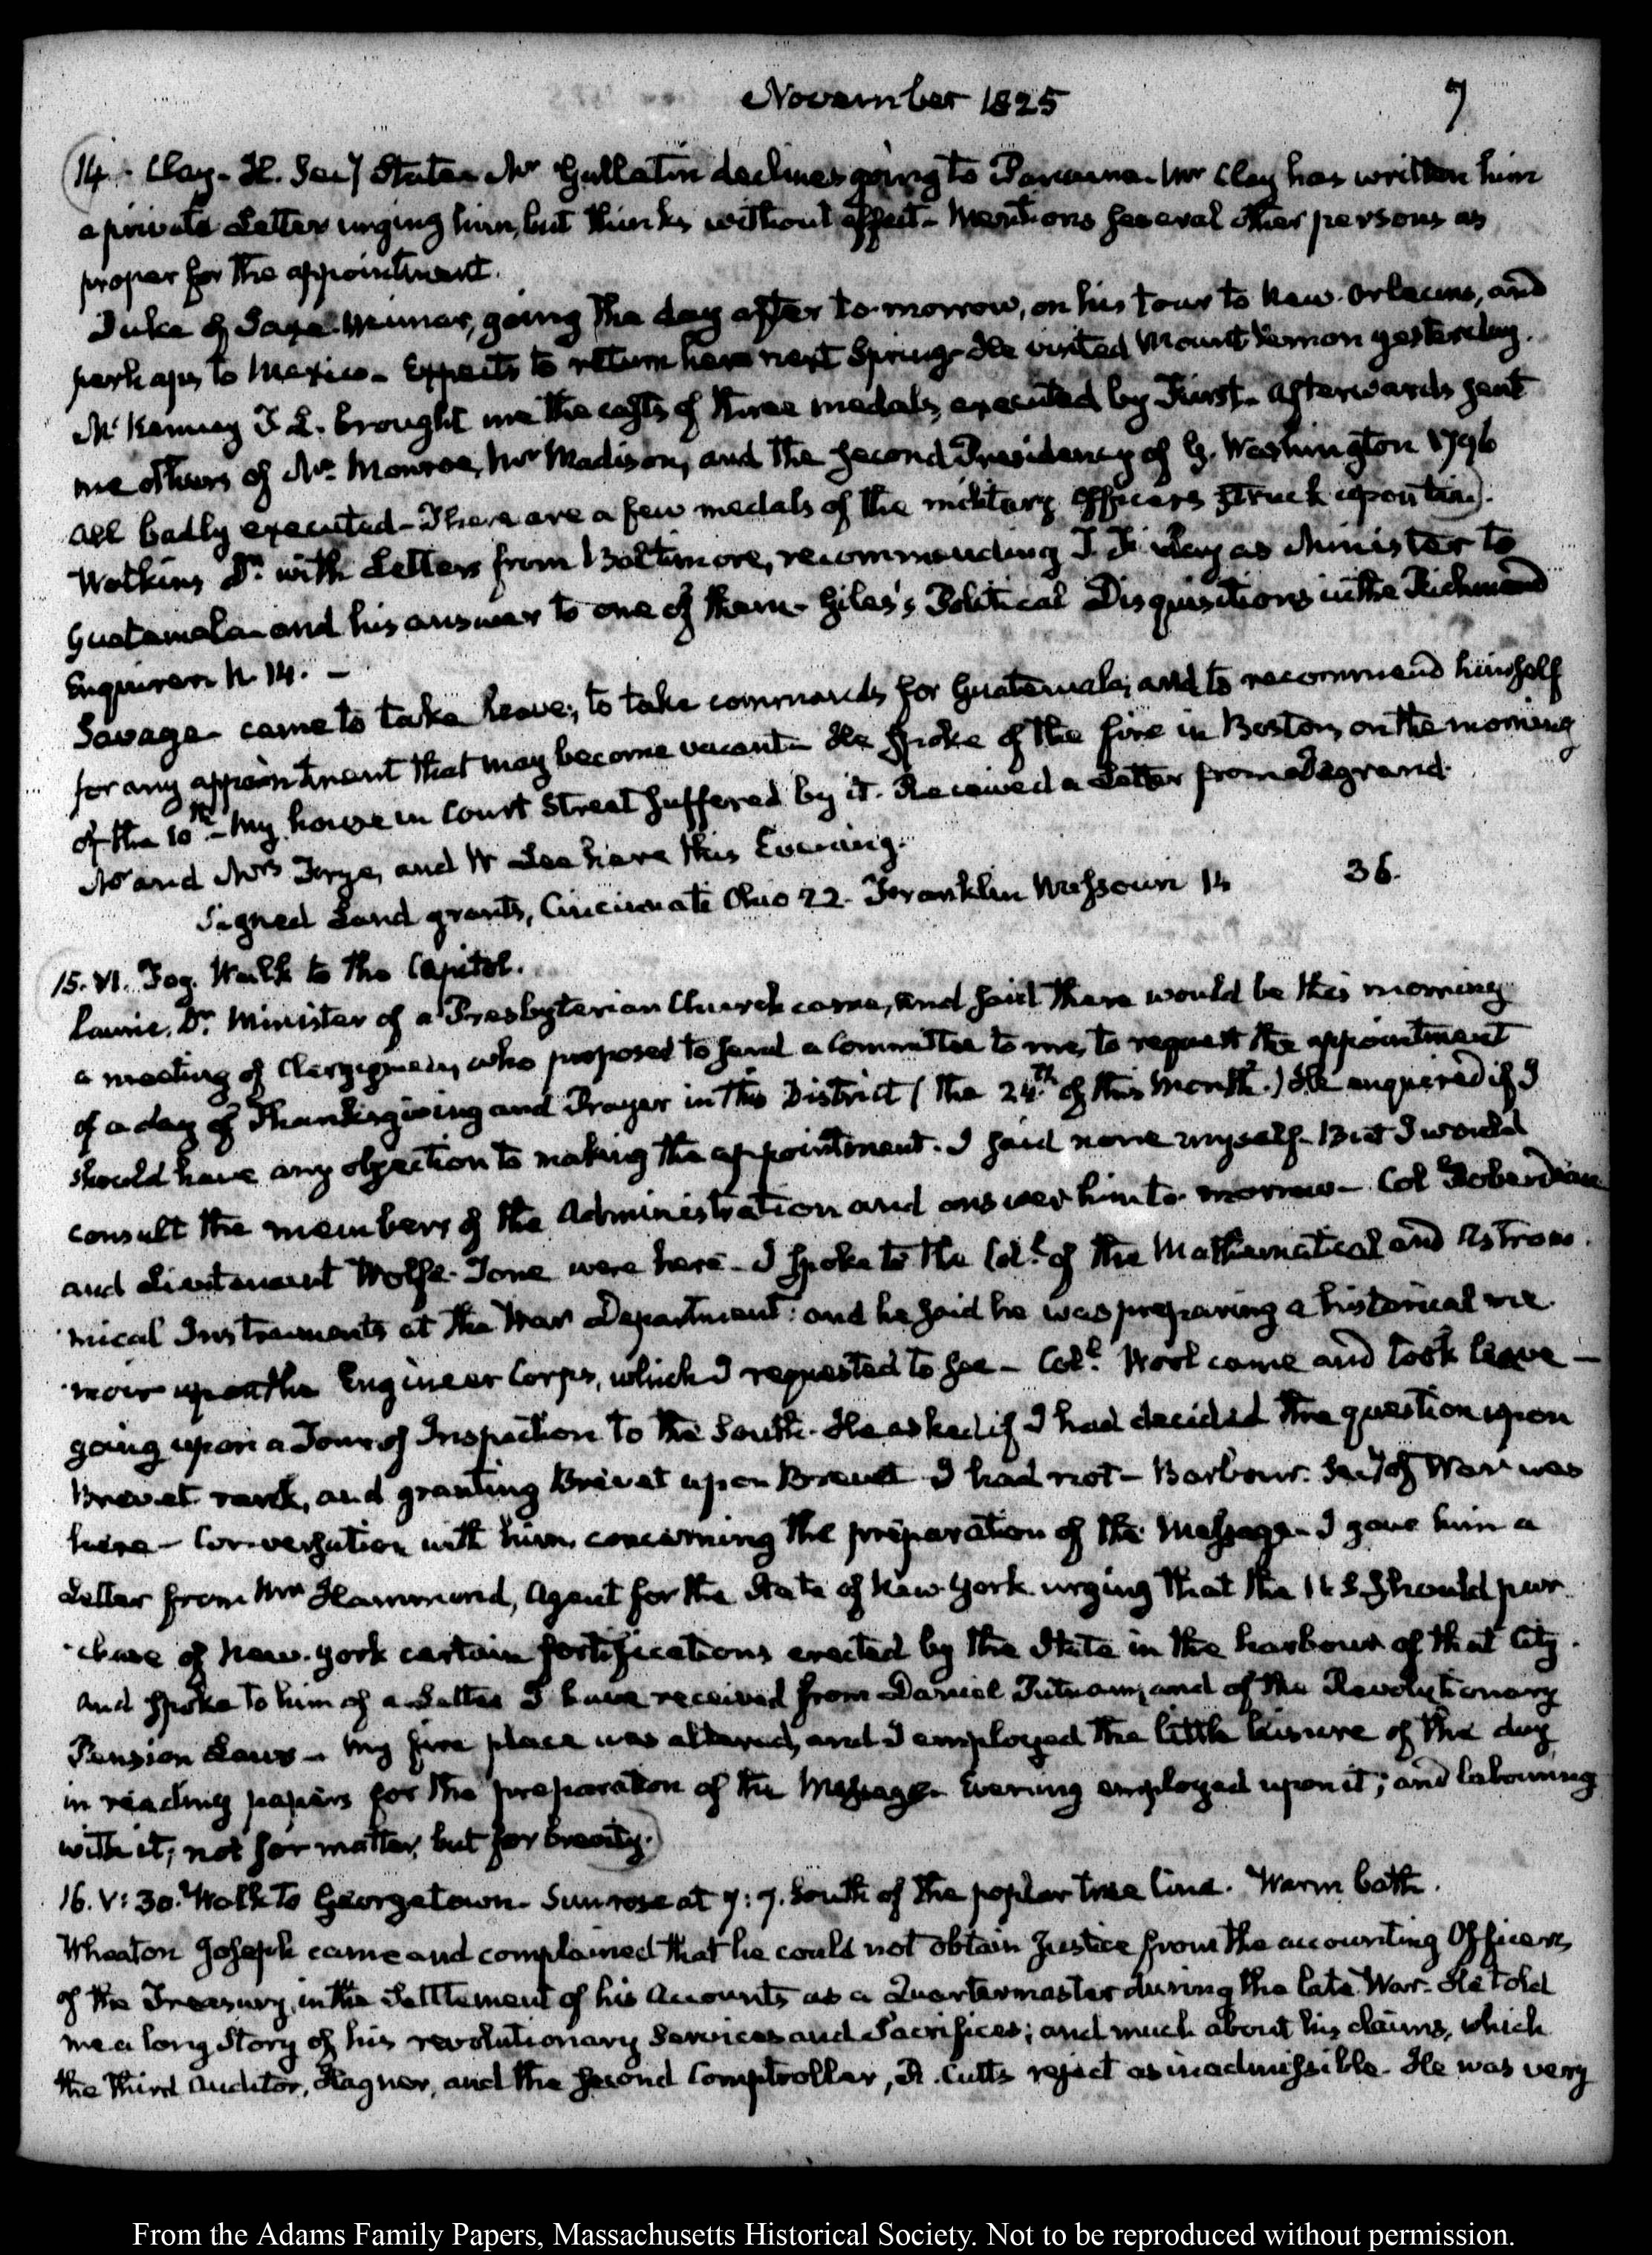 November 1825
7
14. Clay. H. Secy State. Mr Gallatin declines going to Panama. Mr Clay has written him
a private Letter urging him, but thinks without effect. Mentions several other persons as
proper for the appointment.
Duke of Saxe Weimar, going the day after to-morrow, on his tour to New-Orleans, and
perhaps, to Mexico. Expects to return here next Spring. He visited Mount Vernon yesterday.
McKenney T. L. brought me the casts of three medals, executed by Furst. Afterwards sent
me others of Mr Monroe, Mr Madison, and the second Presidency of G. Washington 1796
all badly executed. There are a few medals of the military Officers struck upon tin).
Watkins Dr. with Letters from Baltimore, recommending as Minister to
Guatemala and his answer to one of them. Giles's Political Disquisitions in the Richmond
Enquirer N. 14. —
Savage came to take leave; to take commands for Guatemala; and to recommend himself
for any appointment that may become vacant. He spoke of the fire in Boston, on the morning
of the 10th. My house in Court Street suffered by it. Received a Letter from Degrand.
Mr and Mrs Frye, and W Lee here this Evening.
Signed Land grants, Cincinnati Ohio 22. Franklin Missouri 14 36.
15. VI. Fog. Walk to the Capitol.
Laurie. Dr. Minister of a Presbyterian Church came, and said there would be this morning
a meeting of Clergymen, who proposed to send a Committee to me, to request the appointment
of a day of Thanksgiving and Prayer in this District (the 24th of this Month.) He enquired if I
should have any objection to making the appointment. I said none myself. But I would
consult the members of the Administration and answer him to-morrow. Col Roberdeau
and Lieutenant Wolfe-Tone were here. I spoke to the Coll. of the Mathematical and Astrono-
mical Instruments at the War Department: and he said he was preparing a historical me-
moir upon the Engineer Corps, which I requested to see. Coll. Wool came and took leave —
going upon a Tour of Inspection to the South. He asked if I had decided the question upon
Brevet rank, and granting Brevet upon Brevet. I had not. Barbour. Secy of War was
here. Conversation with him concerning the preparation of the Message. I gave him a
Letter from Mr Hammond, Agent for the State of New-York urging that the U S. should pur-
chase of New-York certain fortifications erected by the State in the harbour of that City.
And spoke to him of a Letter I have received from Daniel Putnam, and of the Revolutionary
Pension Laws. My fire place was altered, and I employed the little leisure of the day
in reading papers for the preparation of the Message. Evening employed upon it; and labouring
with it; not for matter, but for brevity.
16. V:30. Walk to Georgetown. Sun rose at 7:7. South of the poplar tree line. Warm bath.
Wheaton Joseph came and complained that he could not obtain Justice from the accounting Officers
of the Treasury, in the Settlement of his Accounts as a Quartermaster during the late War. He told
me a long Story of his revolutionary Services and Sacrifices; and much about his claims, which
the third Auditor, Hagner, and the second Comptroller, R. Cutts reject as inadmissible. He was very
From the Adams Family Papers, Massachusetts Historical Society. Not to be reproduced without permission.